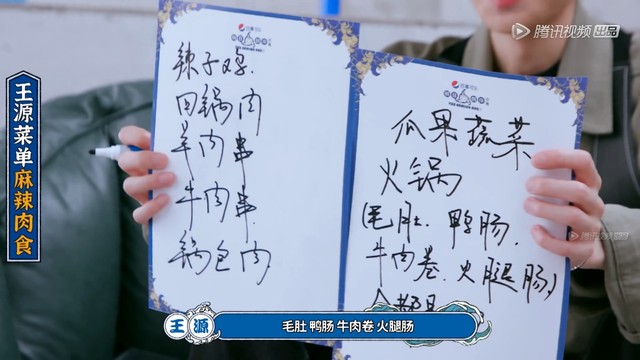 腾讯视频 出品
王源菜单麻辣肉食
辣子鸡.
回锅肉
羊肉串
牛肉串
锅包肉
瓜果蔬菜
火锅
(毛肚. 鸭肠.
牛肉卷. 火腿肠)
腾讯视频
王源
毛肚 鸭肠 牛肉卷 火腿肠